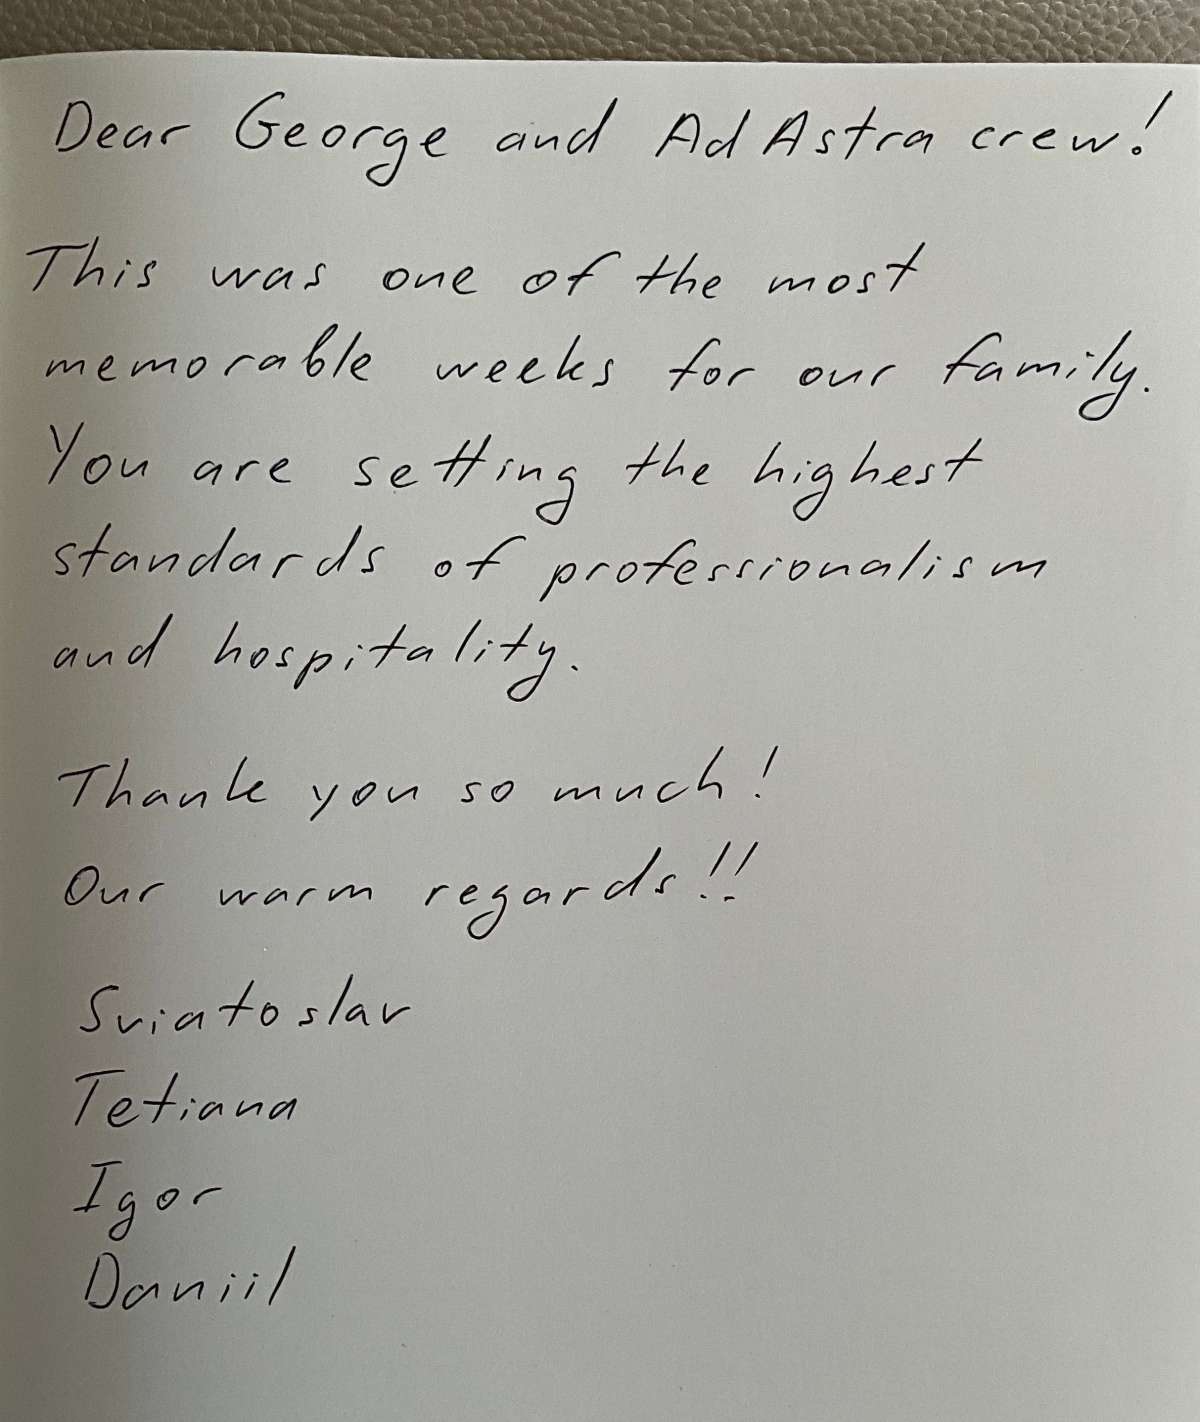 Dear George and Ad Astra crew!
This was one of the most
memorable weeks for our family.
You are setting the highest
standards of professionalism
and hospitality.
Thank you so much!
Our warm regards!!
Sviatoslav
Tetiana
Igor
Daniil